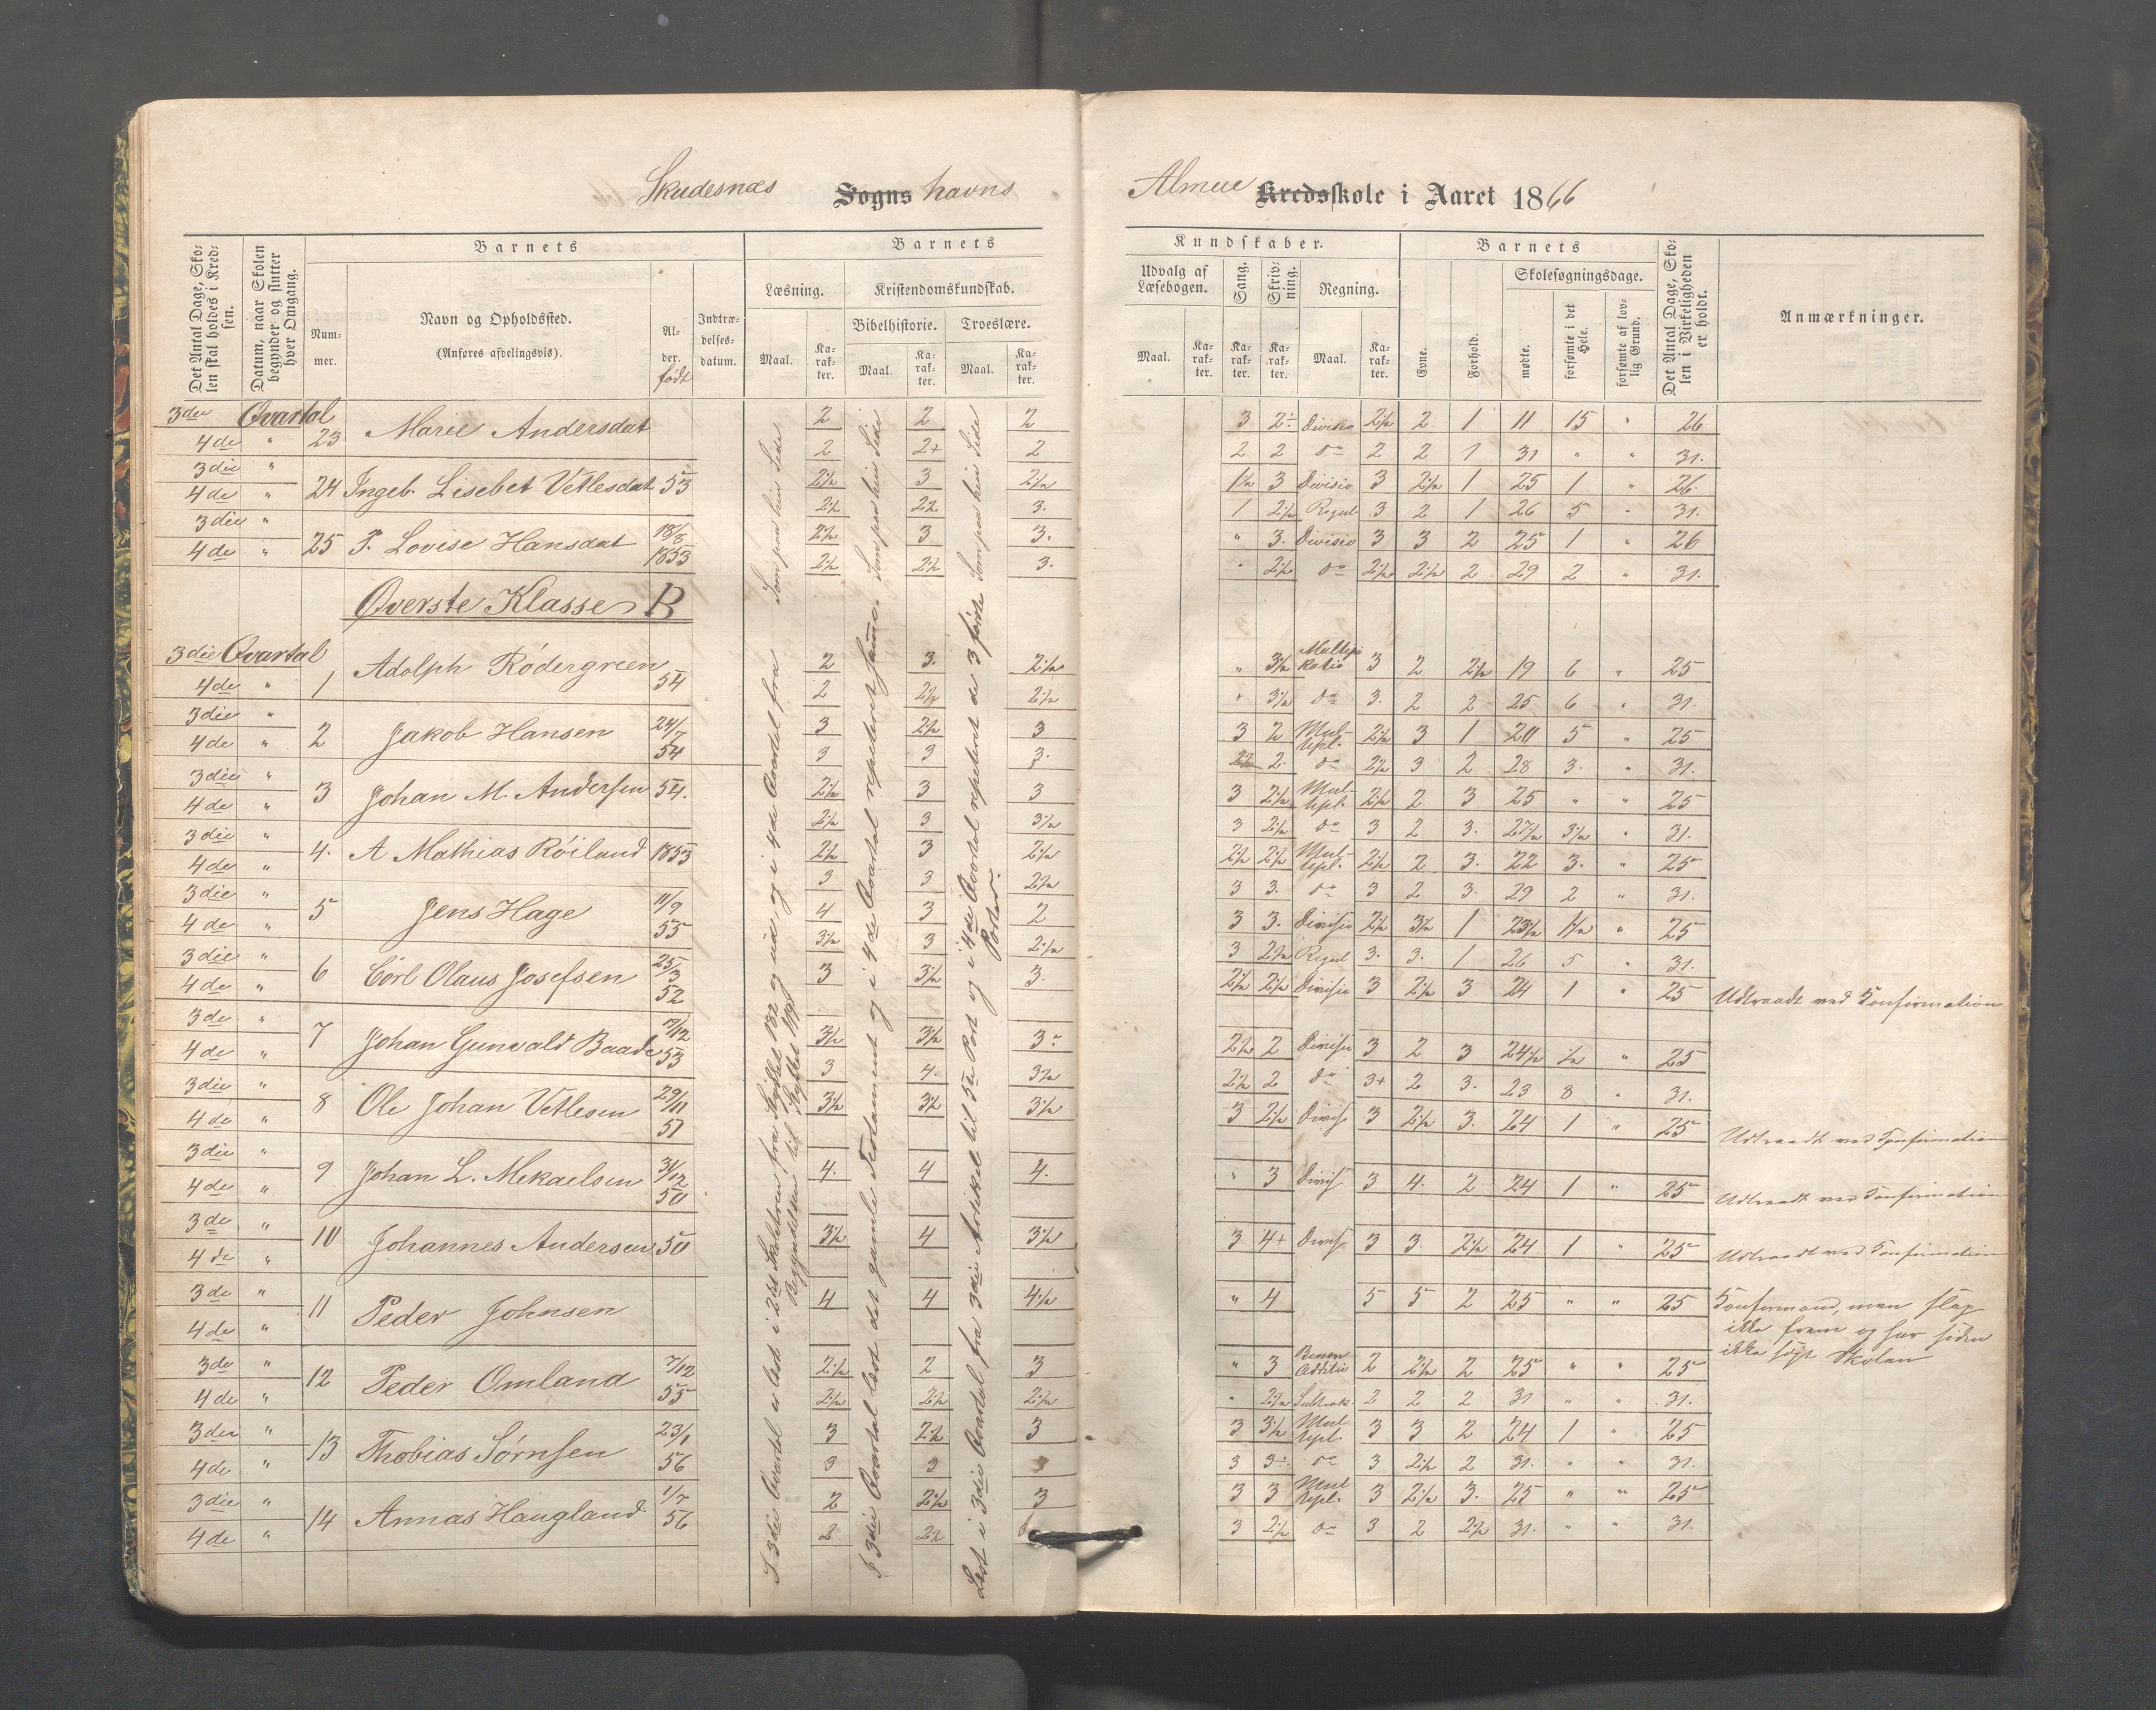 Skudesnæs Sogns havns
Almue Kredsskole i Aaret 1866
Det Antal Dage, Skolen skal holdes i Kredsen.
Datum, naar Skolen begynder og slutter hver Omgang.
Barnets
Nummer.
Navn og Opholdssted.
(Anføres afdelingsvis).
Alder. født
Indtrædelsesdatum.
Barnets
Læsning.
Kristendomskundskab.
Bibelhistorie.
Troeslære.
Maal. Karakter. Maal. Karakter. Maal. Karakter.
Kundskaber.
Udvalg af Læsebogen.
Sang.
Skrivning.
Regning.
Maal. Karakter. Karakter. Karakter. Maal. Karakter.
Barnets
Evne.
Forhold.
Skolesøgningsdage.
mødte.
forsømte i det Hele.
forsømte af lovlig Grund.
Det Antal Dage, Skolen i Virkeligheden er holdt.
Anmærkninger.
3die Qvartal 23 Marie Andersdat 2 2 2 3 Divisio 2 1 11 15 " 26
4de " 2 2+ 2 2 2 do 2 2 1 31 " " 31.
3die " 24 Ingeb. Lisebet Vetlesdat 53 2½ 3 2½ 1½ 3 Divisio 3 2½ 1 25 1 " 26.
4de " 2½ 2½ 3. 1 2½ Regul 3 2 1 26 5 " 31.
3die " 25 P. Lovise Hansdat 18/8 1853 2½ 3 3. " 3. Divisio 3 3 2 25 1 " 26
4de " 2½ 2½ 3. " 2½ do 2½ 2½ 2 29 2 " 31.
Øverste Klasse B
3die Qvartal 1 Adolph Rödergreen 54 2 3. 2½ " 3½ Multipikatio 3 2 2½ 19 6 " 25
4de " 2 2½ 2½ " 3½ do 3. 2 2 25 6 " 31.
3die " 2 Jakob Hansen 24/7 54 3 2½ 3 3 2 Multipl. 2½ 3 1 20 5 " 25
4de " 3 3 3. 2. do 2½ 3 2 28 3. " 31.
3die " 3 Johan M. Andersen 54. 2½ 3 3 3 2½ Multipl. 2½ 2 3 25 " " 25
4de " 2½ 3 3½ 3 2½ do 3 2 3. 27½ 3½ " 31.
3die " 4. A Mathias Röiland 1853 2½ 3 2½ 2½ 2½ Multipl. 2½ 2 3. 22 3. " 25
4de " 3 3 2½ 3 3. do 3 2 3. 29 2 " 31.
3die " 5 Jens Hage 11/9 55 4 3 2 3 3. Divisio 2½ 3½ 1 23½ 1½ " 25
4de " 3½ 3 2½ 3 2½ Regul 3. 3. 1 26 5 " 31.
3die " 6 Carl Olaus Josefsen 25/3 52 3 3½ 3. 2½ 2½ Divisio 3 2½ 3 24 1 " 25 Udtraadt ved Konfirmation
4de "
3die " 7 Johan Gunvald Baade /12 53 3½ 3½ 3 2½ 2 Divisio 3 2 3 24½ ½ " 25
4de " 3 4. 3½ 2½ 2 do 3+ 2 3. 23 8 " 31.
3die " 8 Ole Johan Vetlesen 29/11 51 3½ 3½ 3½ 3 2½ Divis 3 2½ 3. 24 1 " 25 Udtraadt ved Konfirmation
4de "
3die " 9 Johan L. Mekaelsen 31/12 50 4. 4 4. " 3 Divis 3 4. 2 24 1 " 25 Udtraadt ved Konfirmation
4de "
3die " 10 Johannes Andersen 50 3½ 4 3½ 3 4+ Divis 3 3. 2½ 24 1 " 25 Udtraadt ved Konfirmation
4de "
3die " 11 Peder Johnsen 4 4 4½ " 4 5 5 2 25 " " 25 Konfirmand, men slap ikke frem og har siden ikke søgt Skolen
4de "
3die " 12 Peder Omland 7/12 55 2½ 2 3 " 3 Additio 2 2½ 2 25 " " 25
4de " 2½ 2½ 2½ " 2½ Subtrak 2 2 2 31 " " 31.
3die " 13 Thobias Sörnsen 23/1 56 3 2½ 3 3 3½ Multipl. 3 3 2 24 1 " 25
4de " 3 3 3 3 do 3 2½ 2 31. " " 31.
3die " 14 Annas Haugland 1/7 56 2 2½ 3 3 3 Multipl. 3 2½ 3. 25 " " 25
4de " 2 2½ 3 2½ do 3 2 2½ 31. " " 31.
I 3die Qvartal er læst i 2det Skoletrin fra Stykket 182 og ud, og i 4de Qvartal fra Begyndelsen til Stykket Som paa hin Side
I 3die Qvartal læst det gamle Testament og i 4de Qvartal repeteret samme. Som paa hin Side
Læst i 3die Qvartal fra 3die Artikel til 5te Part og i 4de Qvartal repeteret de 3 første Parter. Som paa hin Side